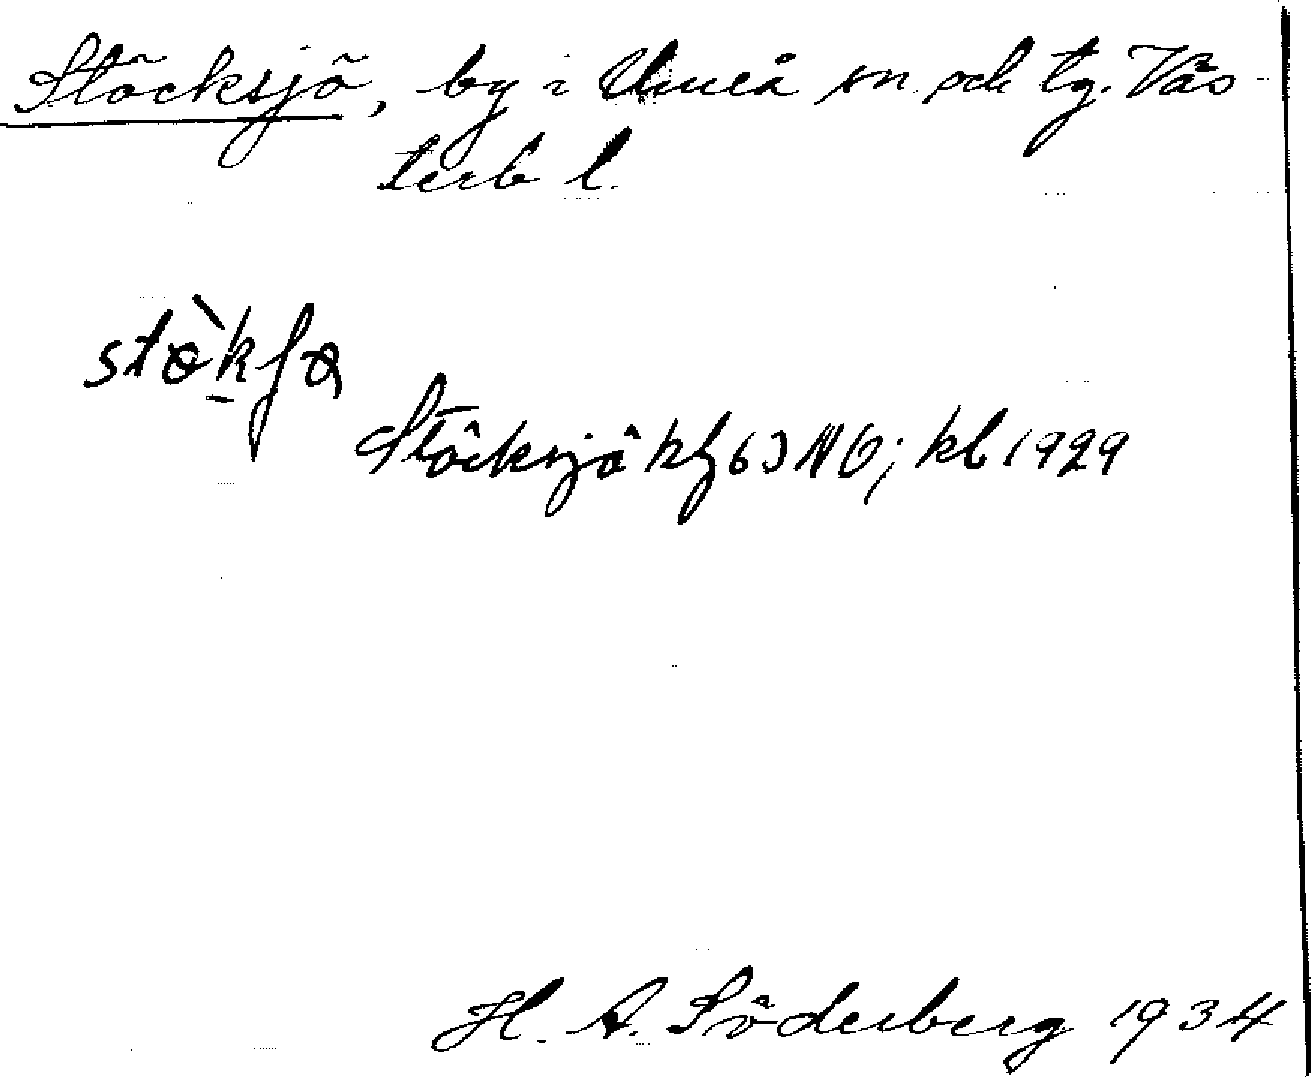 Stöcksjö, by i Umeå sn. och tg. Väs-
terb l.
Stöcksjö kbl 63 NO; kbl 1929
H. A. Söderberg 1934